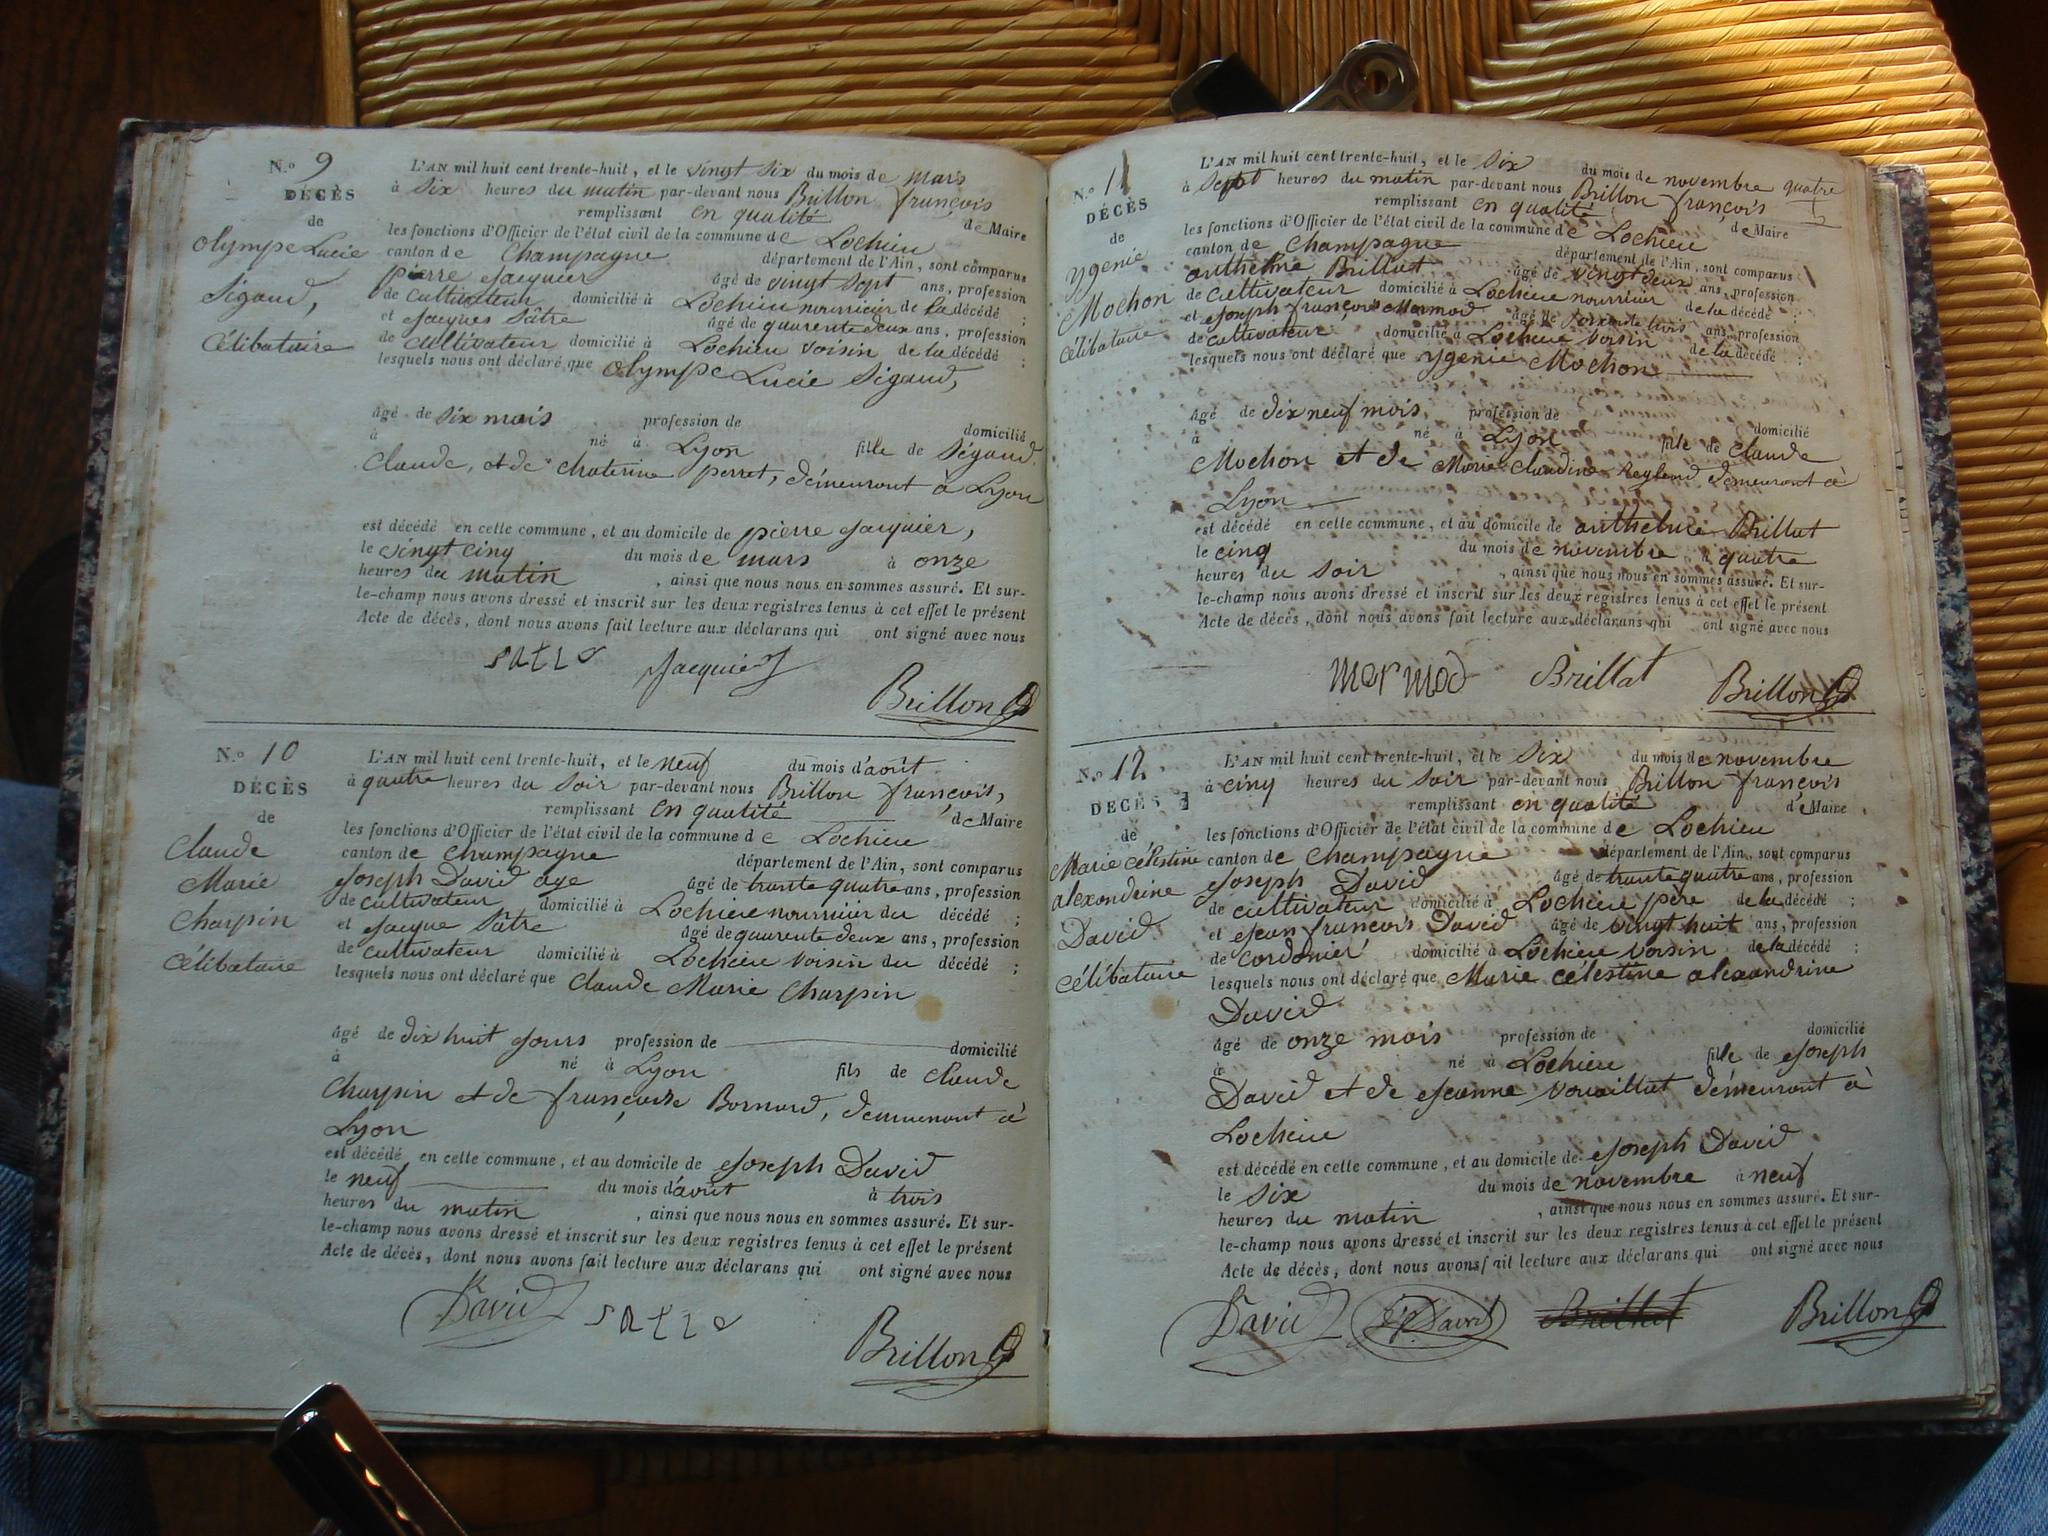 N.º 9
DÉCÈS
de
Olympe Lucie
Sigaud,
Célibataire
L'AN mil huit cent trente-huit, et le vingt six du mois de mars
à six heures du matin par-devant nous Brillon françois
remplissant en qualité de Maire
les fonctions d'Officier de l'état civil de la commune de Lochieu
canton de Champagne département de l'Ain, sont comparus
pierre Jacquier âgé de vingt sept ans, profession
de cultivateur domicilié à Lochieu nourricier de la décédé ;
et Jacques Sâtre âgé de quarente deux ans, profession
de cultivateur domicilié à Lochieu voisin de la décédé ;
lesquels nous ont déclaré que Olympe Lucie Sigaud,
âgé de six mois profession de domicilié
à né à Lyon fille de Ségaud
Claude, et de Chaterine perret, démeurant à Lyon
est décédé en cette commune, et au domicile de pierre Jacquier,
le vingt cinq du mois de mars à onze
heures du matin , ainsi que nous nous en sommes assuré. Et sur-
le-champ nous avons dressé et inscrit sur les deux registres tenus à cet effet le présent
Acte de décès, dont nous avons fait lecture aux déclarans qui ont signé avec nous
Jacquier
Brillon
N.º 10
DÉCÈS
de
Claude
Marie
Charpin
Célibataire
L'AN mil huit cent trente-huit, et le neuf du mois d'août
à quatre heures du soir par-devant nous Brillon françois,
remplissant en qualité de Maire
les fonctions d'Officier de l'état civil de la commune de Lochieu
canton de Champagne département de l'Ain, sont comparus
Joseph David age âgé de trante quatre ans, profession
de cultivateur domicilié à Lochieu nourricier du décédé ;
et Jacque Sâtre âgé de quarente deux ans, profession
de cultivateur domicilié à Lochieu voisin du décédé ;
lesquels nous ont déclaré que Claude Marie Charpin
âgé de dix huit jours profession de domicilié
à né à Lyon fils de Claude
Charpin et de françoise Bornard, demeurant à
Lyon
est décédé en cette commune, et au domicile de Joseph David
le neuf du mois d'août à trois
heures du matin , ainsi que nous nous en sommes assuré. Et sur-
le-champ nous avons dressé et inscrit sur les deux registres tenus à cet effet le présent
Acte de décès, dont nous avons fait lecture aux déclarans qui ont signé avec nous
David
Brillon
N.º 11
DÉCÈS
de
Ygenie
Mochon
célibataire
L'AN mil huit cent trente-huit, et le six du mois de novembre quatre
à Sept heures du matin par-devant nous Brillon françois
remplissant en qualité de Maire
les fonctions d'Officier de l'état civil de la commune de Lochieu
canton de Champagne département de l'Ain, sont comparus
anthelme Brillat âgé de vingt deux ans, profession
de cultivateur domicilié à Lochieu nourricier de la décédé ;
et Joseph françois Mermod âgé de soixante trois ans, profession
de cultivateur domicilié à Lochieu voisin de la décédé ;
lesquels nous ont déclaré que Ygenie Mochon
âgé de dix neuf mois, profession de domicilié
à né à Lyon fille de Claude
Mochon et de Marie Claudine Reylend démeurant à
Lyon
est décédé en cette commune, et au domicile de anthelme Brillat
le cinq du mois de novembre à quatre
heures du soir , ainsi que nous nous en sommes assuré. Et sur-
le-champ nous avons dressé et inscrit sur les deux registres tenus à cet effet le présent
Acte de décès, dont nous avons fait lecture aux déclarans qui ont signé avec nous
mermod Brillat
Brillon
N.º 12
DÉCÈS
de
Marie célestine
alexandrine
David
célibataire
L'AN mil huit cent trente-huit, et le six du mois de novembre
à cinq heures du soir par-devant nous Brillon françois
remplissant en qualité de Maire
les fonctions d'Officier de l'état civil de la commune de Lochieu
canton de Champagne département de l'Ain, sont comparus
Joseph David âgé de trante quatre ans, profession
de cultivateur domicilié à Lochieu père de la décédé ;
et Jean françois David âgé de vingt huit ans, profession
de cordonier domicilié à Lochieu voisin de la décédé ;
lesquels nous ont déclaré que Marie célestine alexandrine
David
âgé de onze mois profession de domicilié
à né à Lochieu fille de Joseph
David et de Jeanne vouaillat démeurant à
Lochieu
est décédé en cette commune, et au domicile de Joseph David
le six du mois de novembre à neuf
heures du matin , ainsi que nous nous en sommes assuré. Et sur-
le-champ nous avons dressé et inscrit sur les deux registres tenus à cet effet le présent
Acte de décès, dont nous avons fait lecture aux déclarans qui ont signé avec nous
David David Brillat Brillon